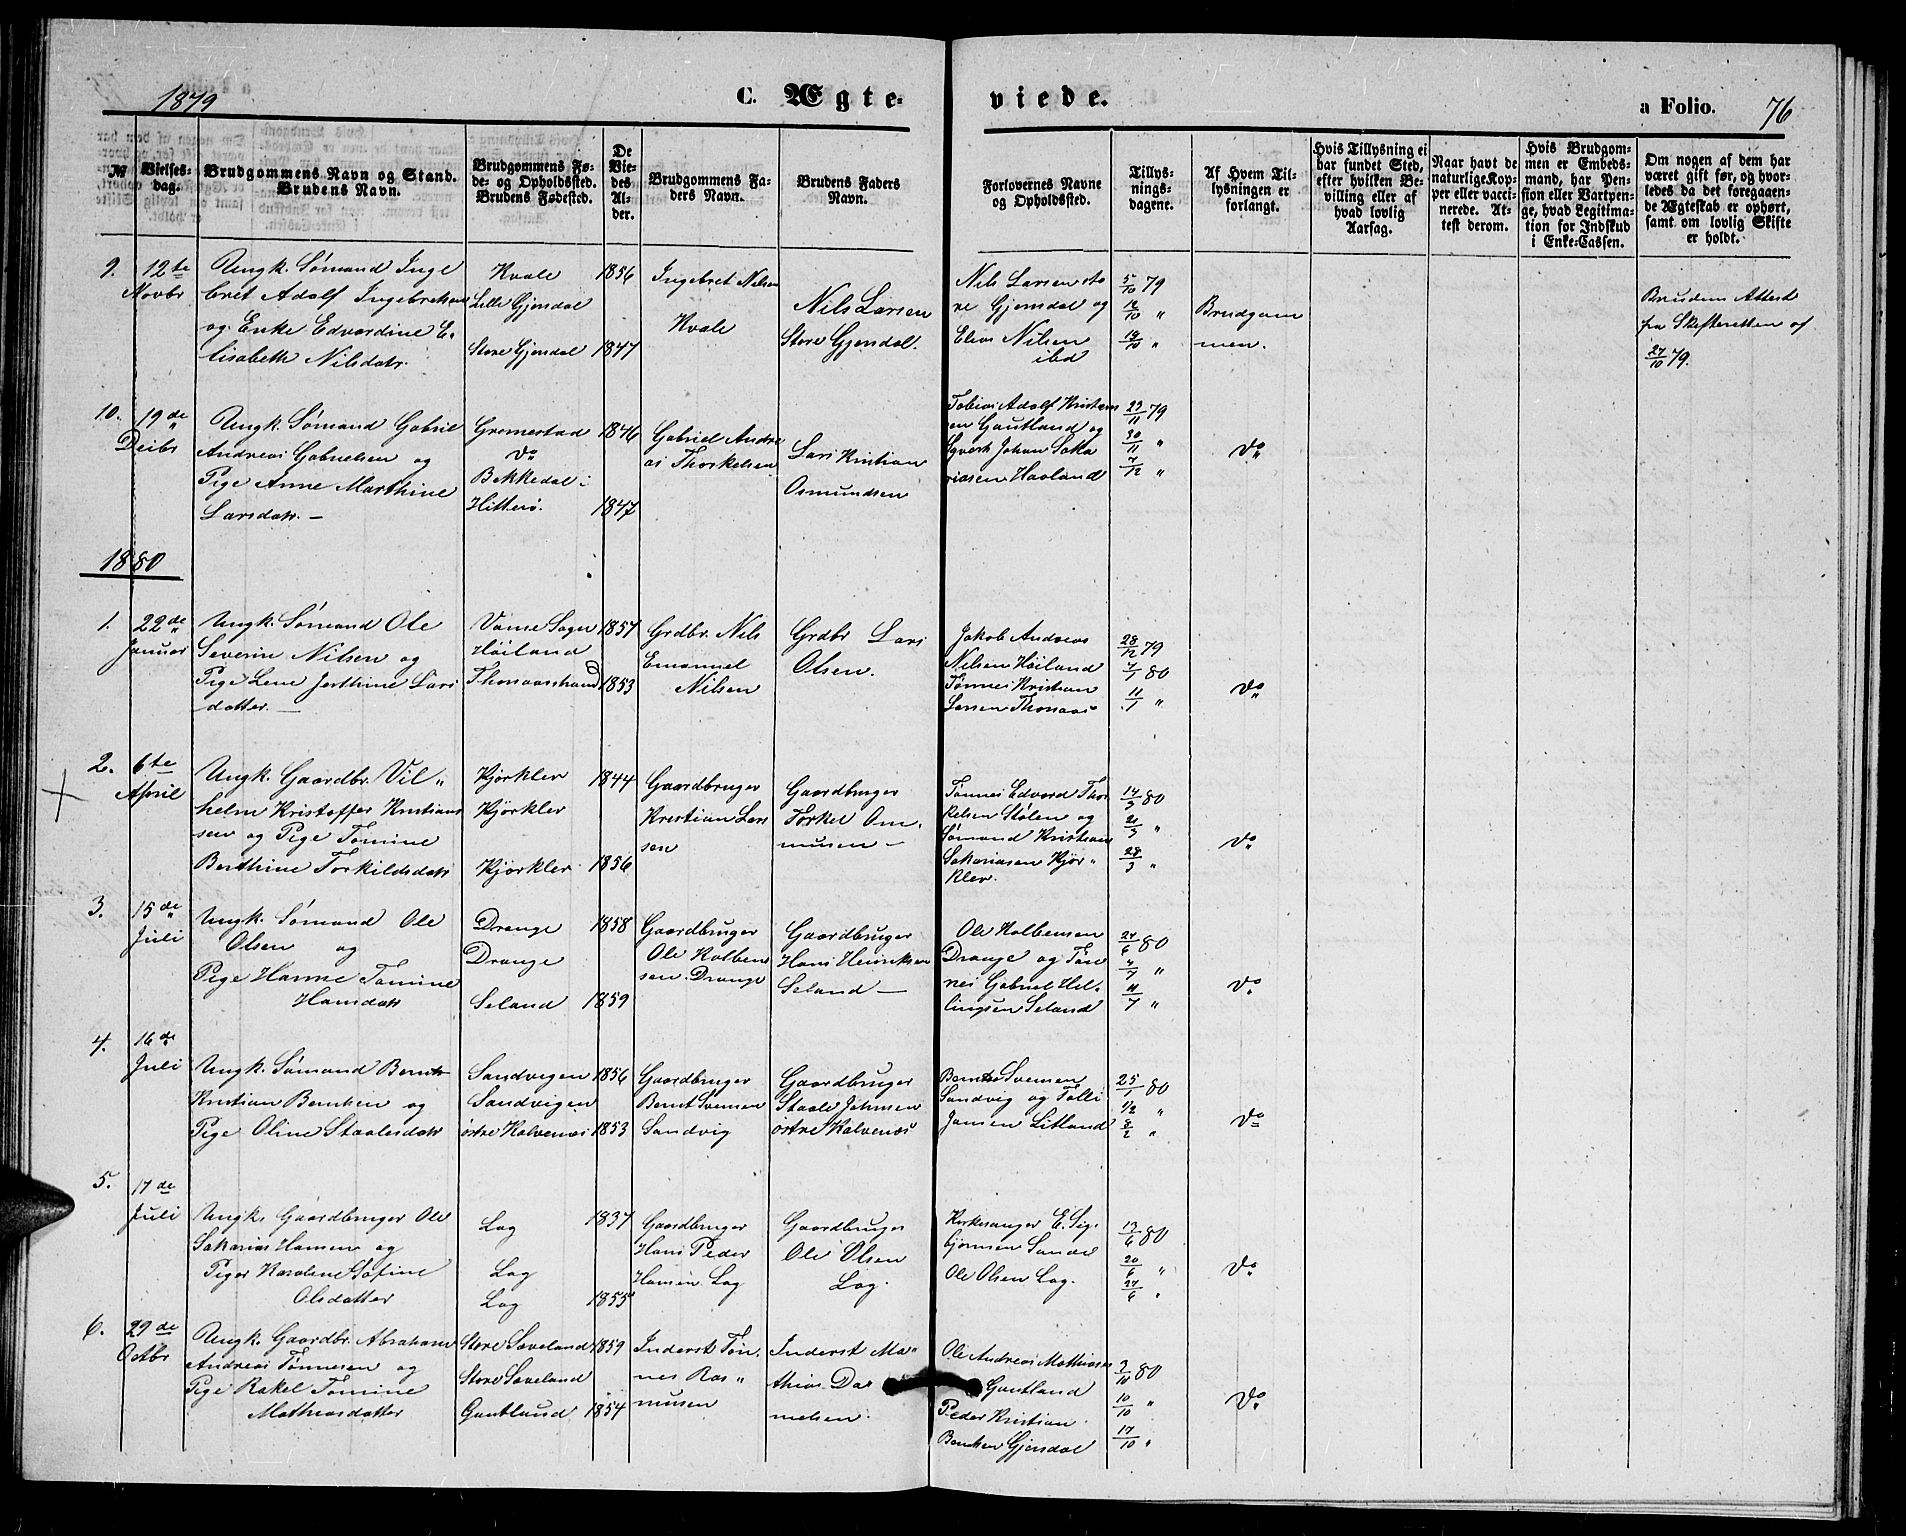 1879
C. Ægte-
viede.
a Folio. 76
№
Vielses-
dag.
Brudgommens Navn og Stand.
Brudens Navn.
Brudgommens Fø-
de- og Opholdssted.
Brudens Fødested.
De
Vie-
des
Al-
der.
Brudgommens Fa-
ders Navn.
Brudens Faders
Navn.
Forlovernes Navne
og Opholdssted.
Tillys-
nings-
dagene.
Af Hvem Til-
lysningen er
forlangt.
Hvis Tillysning ei
har fundet Sted,
efter hvilken Be-
villing eller af
hvad lovlig
Aarsag.
Naar havt de
naturlige Kop-
per eller vacci-
nerede. At-
test derom.
Hvis Brudgom-
men er Embeds-
mand, har Pen-
sion eller Vartpen-
ge, hvad Legitima-
tion for Indskud
i Enke-Cassen.
Om nogen af dem har
været gift før, og hvor-
ledes da det foregaaen-
de Ægteskab er ophørt,
samt om lovlig Skifte
er holdt.
9.
12te
Novbr
Ungk. Sømand Inge
bret Adolf Ingebretsen
og Enke Edvardine E-
lisabeth Nilsdatr.
Kvale
Lille Gjersdal
Store Gjersdal
1856
1847
Ingebret Nilsen
Kvale
Nils Larsen
Store Gjersdal.
Nils Larsen sto
re Gjersdal og
Elias Nilsen
ibd
5/10 79
12/10 "
19/10 "
Brudgom
men.
Brudens Attest
fra Skifteretten af
27/10 79.
10.
19de
Decbr
Ungk. Sømand Gabriel
Andreas Gabrielsen og
Pige Anne Marthine
Larsdatr. —
Gromestad
Do
Bekkedal i
Hitterø.
1846
1847
Gabriel Andre
as Thorkelsen
Lars Kristian
Osmundsen
Tobias Adolf Kristens
en Gautland og
Syvert Johan Saka
riasen Haaland
23/11 79
30/11 "
7/12 "
Do
1880
1.
22de
Januar
Ungk. Sømand Ole
Severin Nilsen og
Pige Lene Jerthine Lars
datter. —
Vanse Sogn
Høiland
Thonaasstrand
1857
1853
Grdbr. Nils
Emanuel
Nilsen
Grdbr Lars
Olsen.
Jakob Andreas
Nilsen Høiland
Tønnes Kristian
Larsen Thonaas
28/12 79
4/1 80
11/1 "
Do
2.
6te
April
Ungk. Gaardbr. Vil "
helm Kristoffer Kristians
sen og Pige Tomine
Berthine Torkildsdatr
Kjørklev
Kjørklev
Kjørklev
1844
1856
Gaardbruger
Kristian Lars
sen
Gaardbruger
Torkel Om-
musen —
Tønnes Edvard Thor
kelsen Stølen og
Sømand Kristian
Sakariasen Kjør-
klev.
14/3 80
21/3 "
28/3 "
Do
3.
15de
Juli
Ungk. Sømand Ole
Olsen og
Pige Hanne Tomine
Hansdatr
Drange
Drange
Seland
1858
1859
Gaardbruger
Ole Kolbens
sen Drange
Gaardbruger
Hans Henriksen
Seland —
Ole Kolbensen
Drange og Tøn
nes Gabriel Hel-
lingsen Seland
27/6 80
4/7 "
11/7 "
Do
4.
16de
Juli
Ungk. Sømand Bernt
Kristian Berntsen og
Pige Oline Staalesdatr
Sandvigen
Sandvigen
østre Kalvenæs
1856
1853
Gaardbruger
Bernt Svensen
Sandvig
Gaardbruger
Staale Johnsen
østre Kalvenæs
Bernt Svensen
Sandvig og Tolli
Jansen Litland
25/1 80
1/2 "
8/2 "
Do
5.
17de
Juli
Ungk. Gaardbruger Ole
Sakarias Hansen og
Pigen Karoline Sofine
Olsdatter
Log
Log
Log
1837
1855
Gaardbruger
Hans Peder
Hansen Log
Gaardbruger
Ole Olsen
Log.
Kirkesanger E. Sig-
bjørnsen Sande
Ole Olsen Log.
13/6 80
20/6 "
27/6 "
Do
6.
29de
Octbr
Ungk. Gaardbr. Abraham
Andreas Tønnesen og
Pige Rakel Tomine
Mathiasdatter
Store Søveland
Store Søveland
Gautland
1859
1854
Inderst Tøn-
nes Ras "
musen
Inderst Ma-
thias Da
nielsen.
Ole Andreas Mathiass
Gautland
Peder Kristian
Berntsen Gjersdal
3/10 80
10/10 "
17/10 "
Do